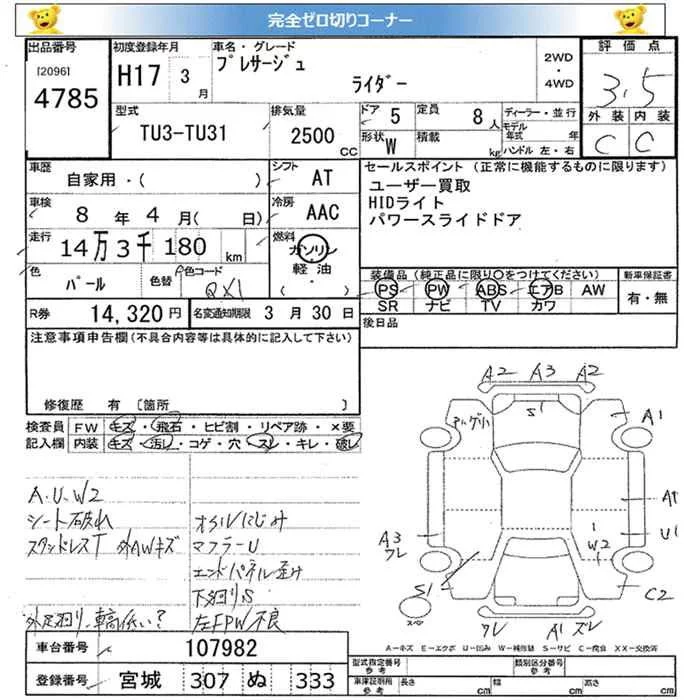 完全ゼロ切りコーナー
出品番号 [2096] 4785
初度登録年月 H17 3月
車名・グレード プレサージュ ライダー
2WD・4WD
評価点 3.5
外装 C 内装 C
型式 TU3-TU31
排気量 2500cc
ドア 5
形状 W
定員 8人
積載 kg
ディーラー・並行
モデル年式 年
ハンドル 左・右
車歴 自家用・( )
シフト AT
車検 8年4月(日)
冷房 AAC
走行 14万3千180km
燃料 ガソリン 軽油 (・)
色 パール
色替
色コード QX1
R券 14,320円
名変通知期限 3月30日
セールスポイント(正常に機能するものに限ります)
ユーザー買取
HIDライト
パワースライドドア
装備品(純正品に限り○をつけてください)
PS PW ABS エアB AW
SR ナビ TV カワ
新車保証書 有・無
後日品
注意事項申告欄(不具合内容等は具体的に記入して下さい)
修復歴 有 [箇所 ]
検査員記入欄
FW キズ・飛石・ヒビ割・リペア跡・×要
内装 キズ・汚レ・コゲ・穴・スレ・キレ・破レ
A.U.W2
シート破れ
スタッドレスT 外AWキズ
外足廻り、車高低い?
オイルにじみ
マフラーU
エンドパネル歪み
下廻りS
左FPW不良
A2 A3 A2
S1
A1
A1
U1
W2
C2
A3
ワレ
S1
スペ
ワレ A1 ズレ
A=キズ E=エクボ U=凹み W=補修跡 S=サビ C=腐食 XX=交換済
車台番号 107982
登録番号 宮城 307 ぬ 333
型式指定番号 参考
類別区分番号 参考
車庫証明用 参考 長さ cm 幅 cm 高さ cm